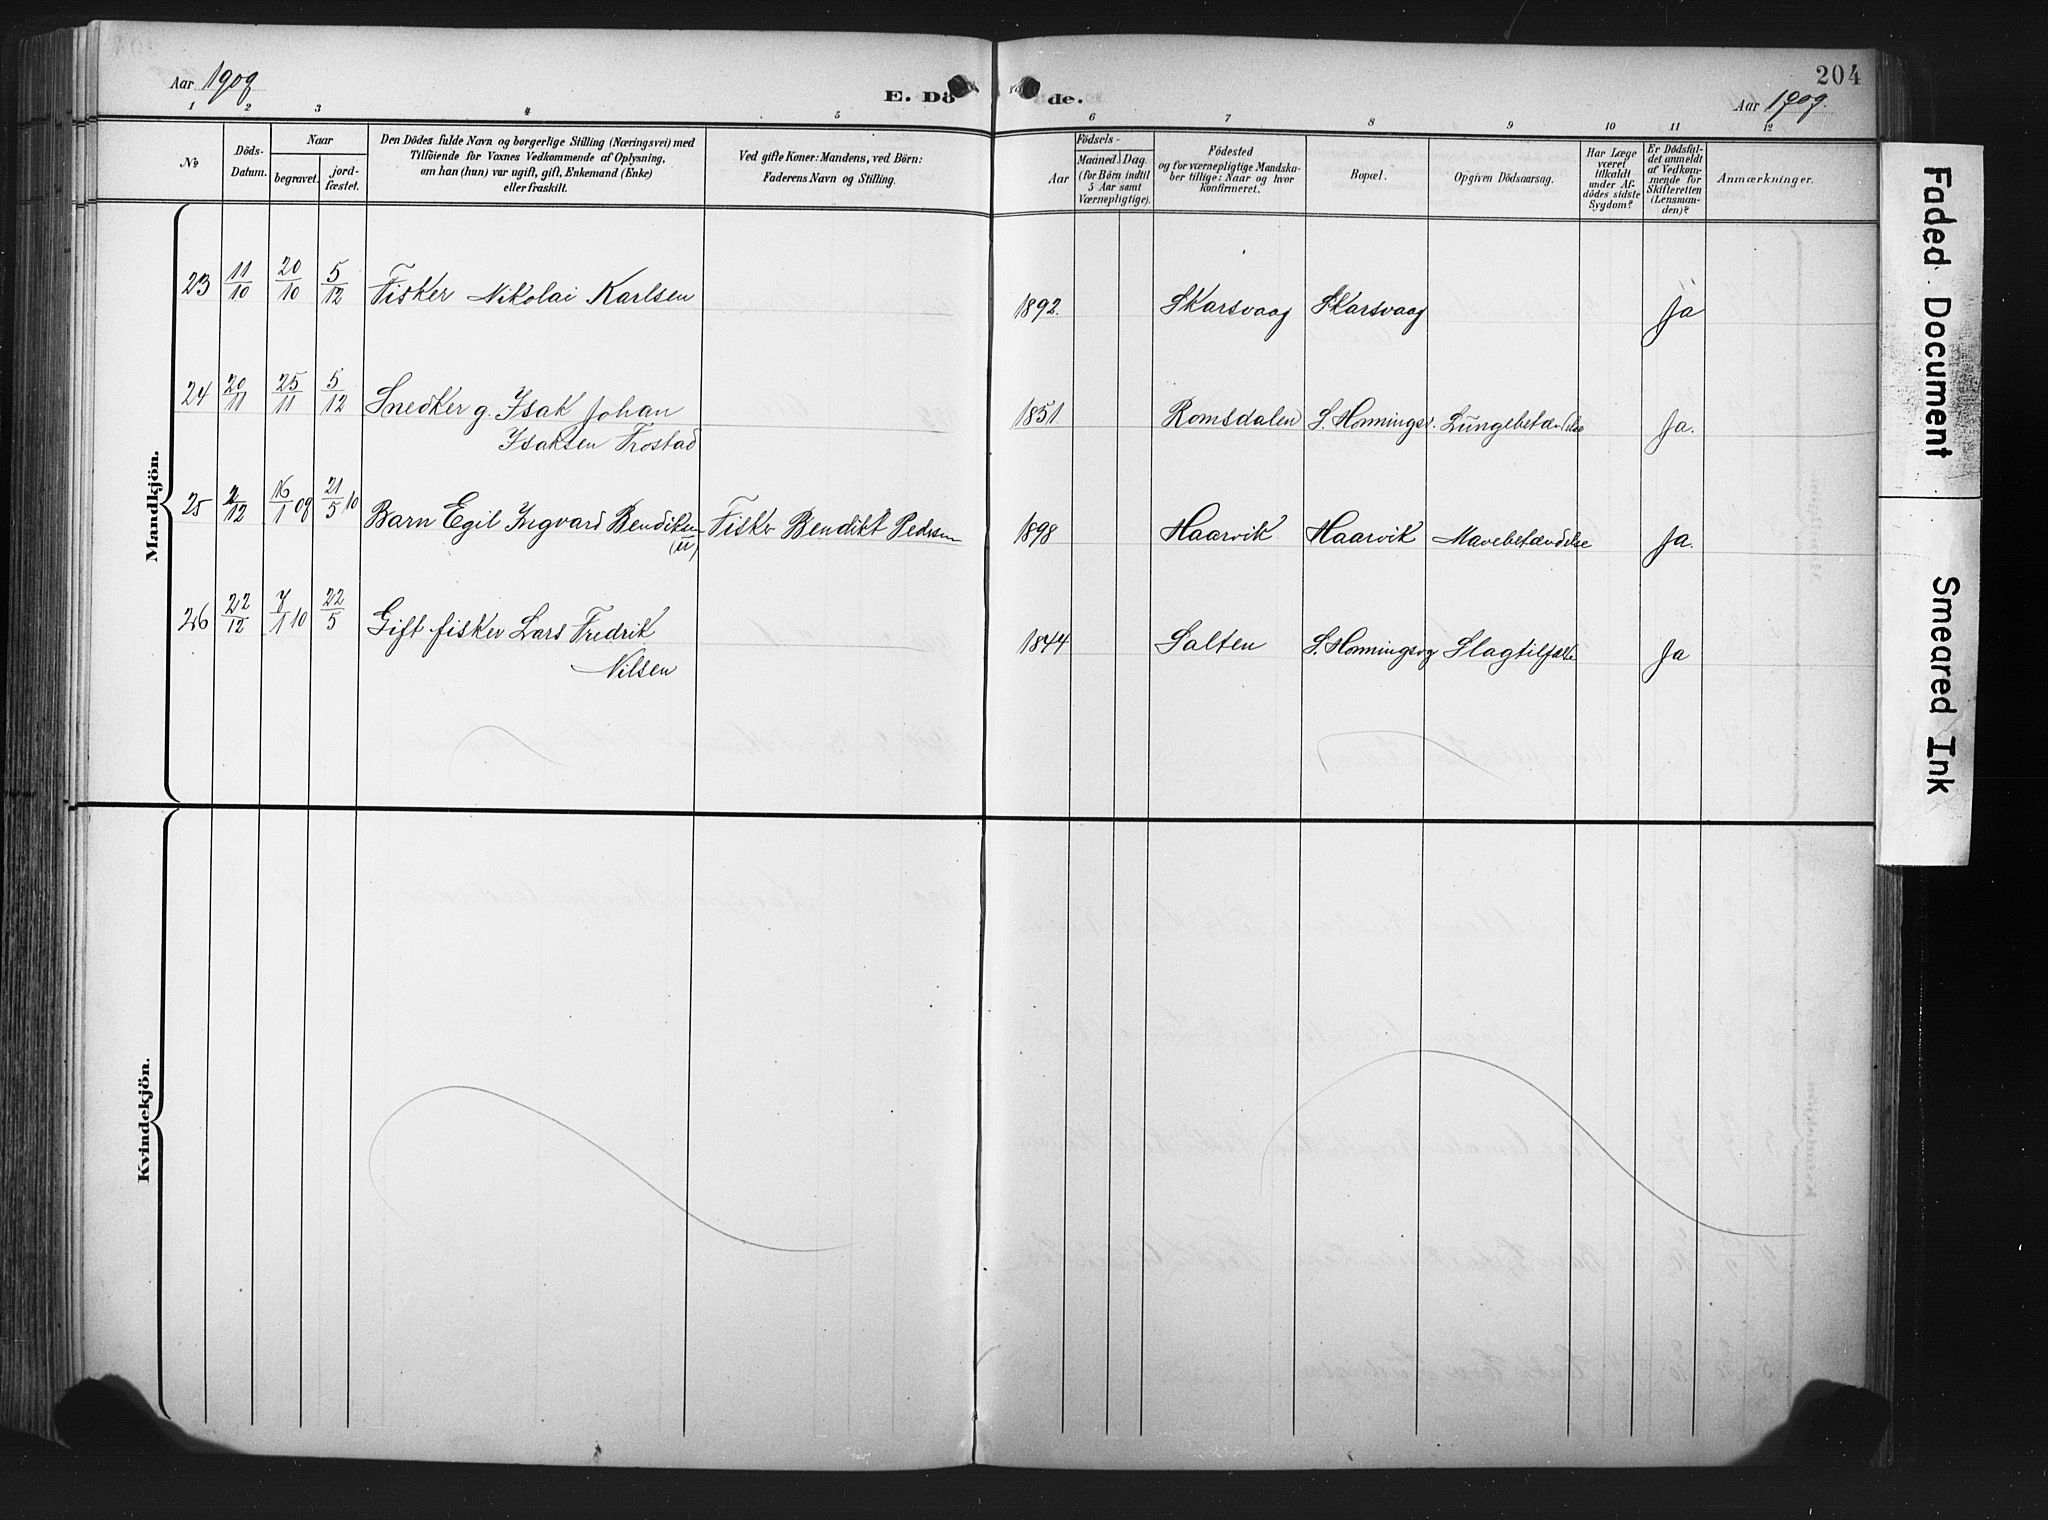 204
Aar 1909
E. Dö
de.
Aar 1909.
1 2 3 4 5 6 7 8 9 10 11 12
No
Döds-
Datum.
Naar
begravet.
jord-
fæstet.
Den Dödes fulde Navn og borgerlige Stilling (Næringsvei) med
Tilföiende for Voxnes Vedkommende af Oplysning,
om han (hun) var ugift, gift, Enkemand (Enke)
eller fraskilt.
Ved gifte Koner: Mandens, ved Börn:
Faderens Navn og Stilling.
Födsels-
Aar
Maaned. Dag.
(for Börn indtil
5 Aar samt
Værnepligtige).
Födested
og for værnepligtige Mandska-
ber tillige: Naar og hvor
konfirmeret.
Bopæl.
Opgiven Dödsaarsag.
Har Læge
været
tilkaldt
under Af-
dödes sidste
Sygdom?
Er Dödsfal-
det anmeldt
af Vedkom-
mende for
Skifteretten
(Lensman-
den)?
Anmærkninger.
Mandkjön.
23 11/10 20/10 5/12 Fisker Nikolai Karlsen 1892. Skarsvaag Skarsvaag Ja
24 20/11 25/11 5/12 Snedker g. Isak Johan 1851. Romsdalen S. Honningsv. Lungebetændelse Ja.
Isaksen Frostad
25 2/12 16/1 09 21/5 10 Barn Egil Ingvard Bendiksen Fisker Bendikt Pedersen 1898 Haarvik Haarvik Mavebetændelse Ja.
26 22/12 7/1 10 22/5 Gift fisker Lars Fredrik 1844 Salten S. Honningsvog Slagtilfælde Ja
Nilsen
Kvindekjön.
Faded Document
Smeared Ink